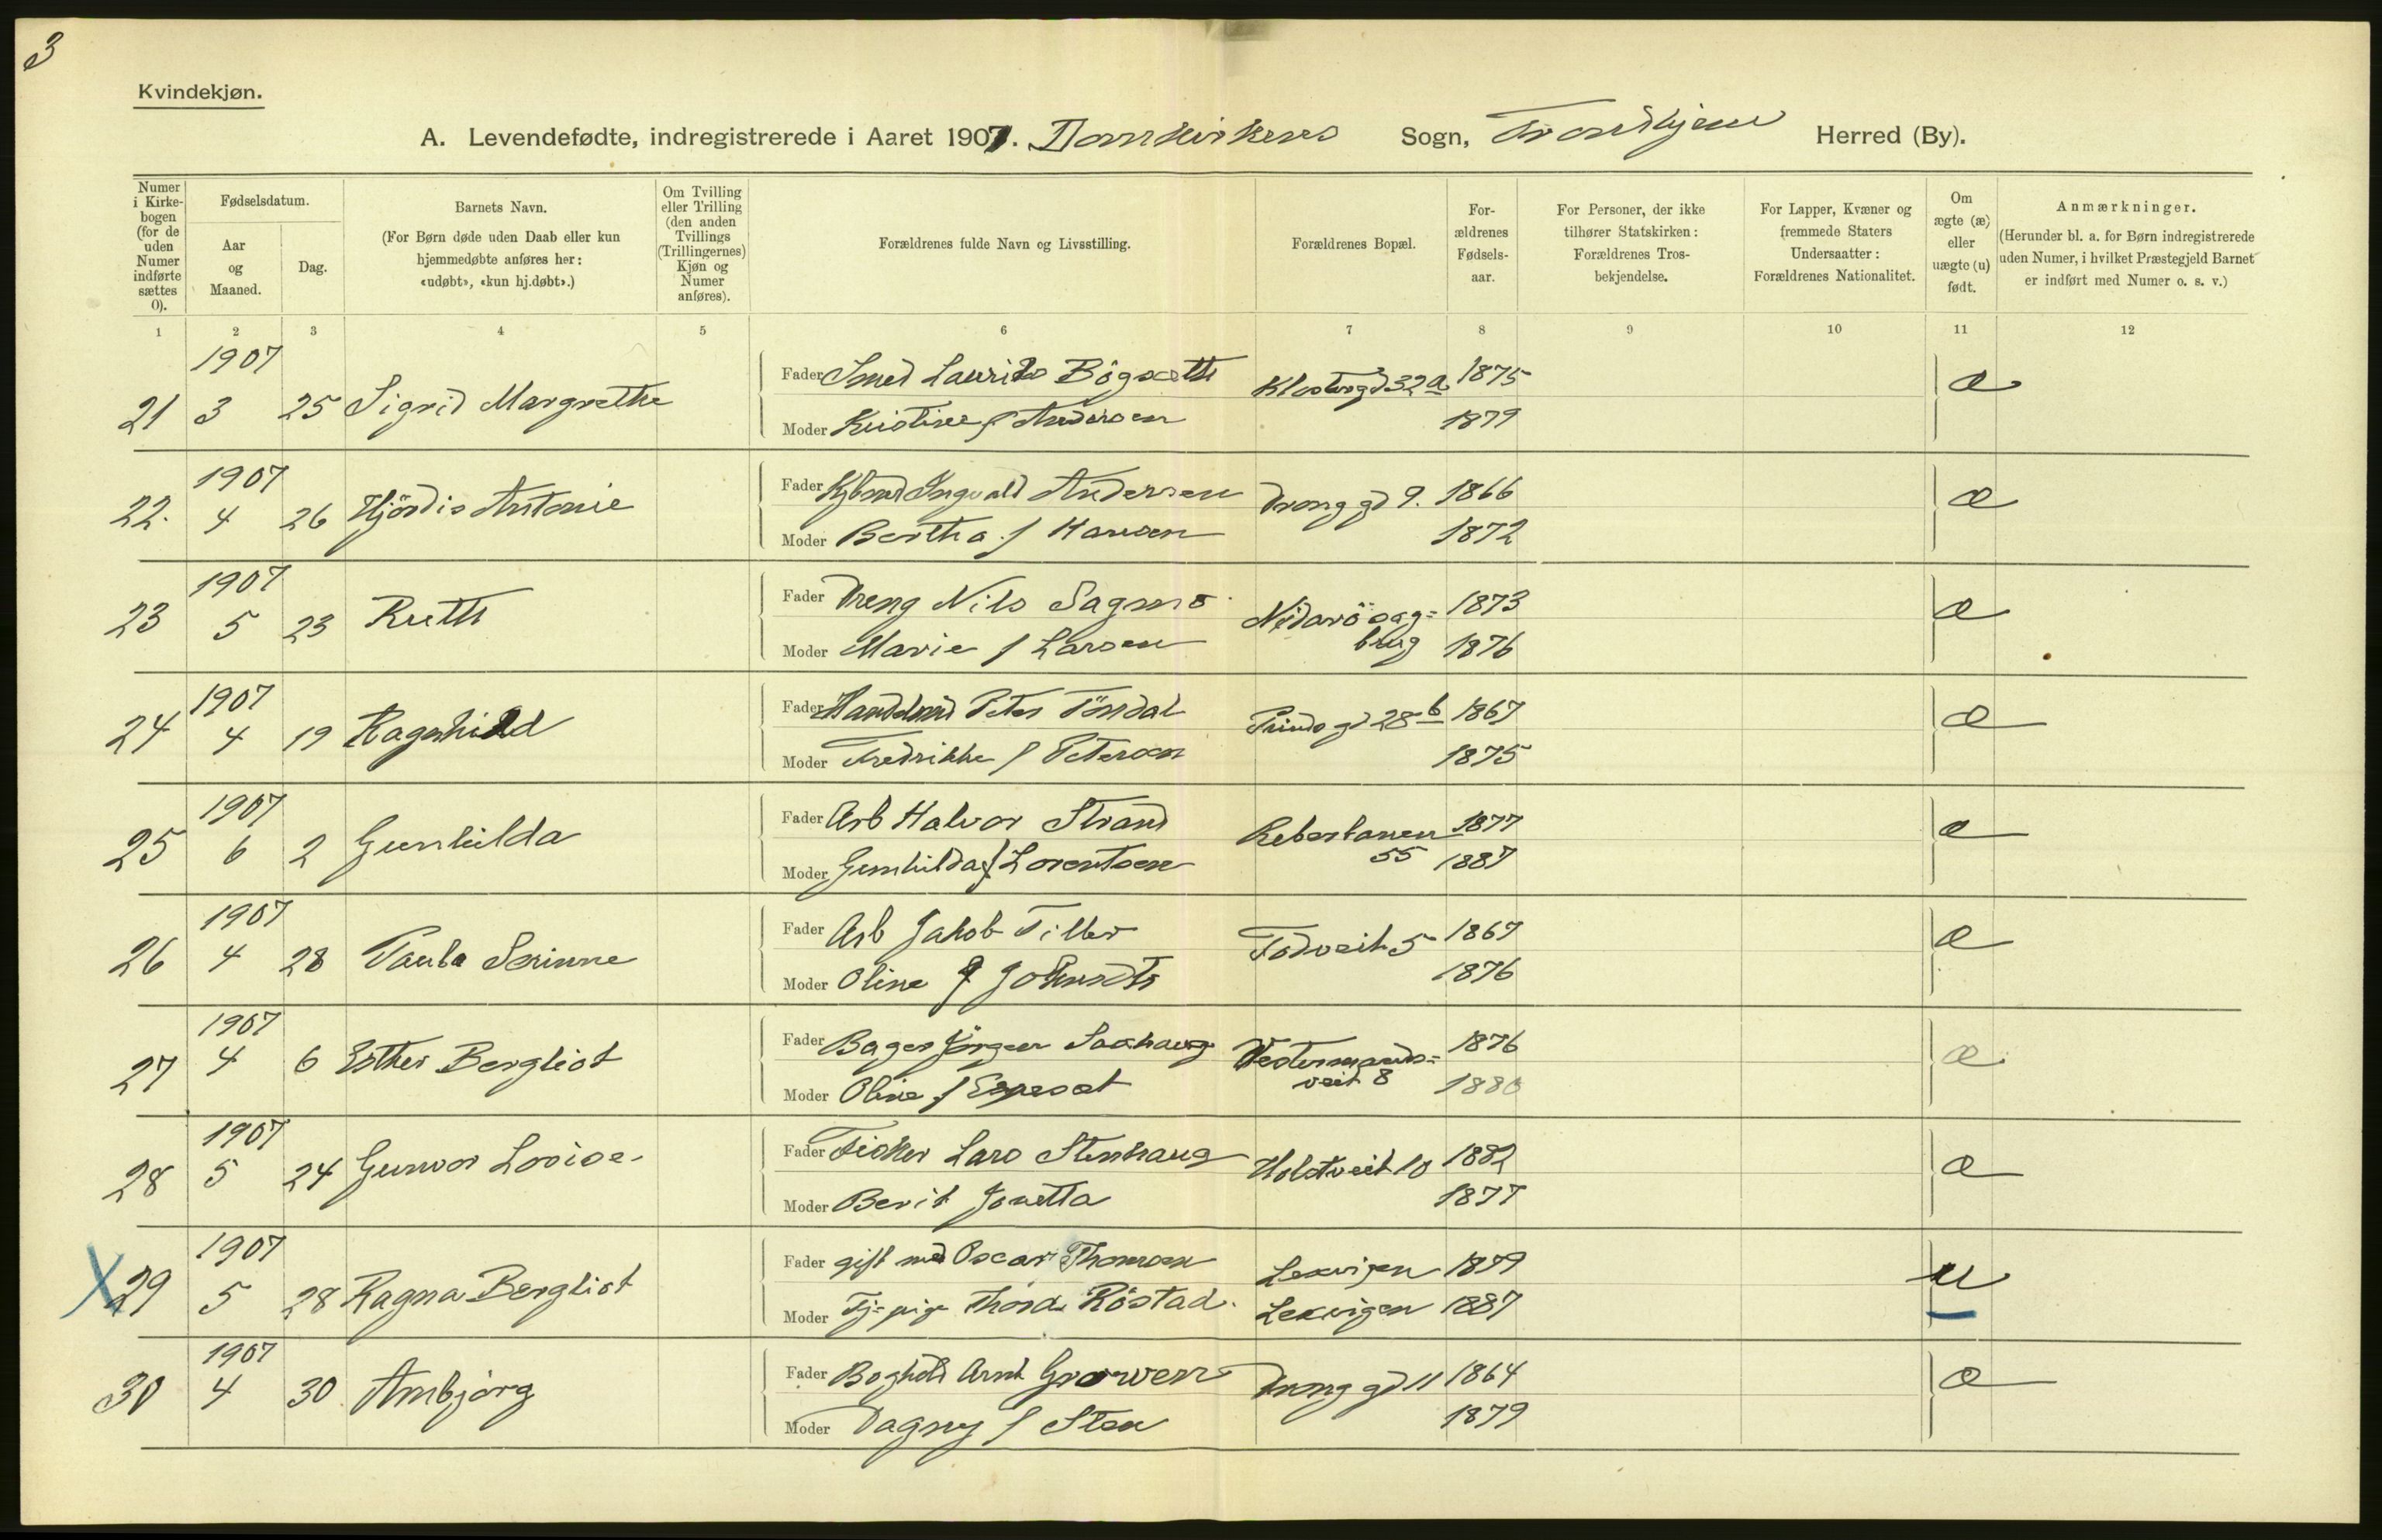 3
Kvindekjøn.
A. Levendefødte, indregistrerede i Aaret 1907. Domkirkens Sogn, Trondhjem Herred (By).
Numer i Kirkebogen (for de uden Numer indførte sættes 0).
Fødselsdatum.
Aar og Maaned.
Dag.
Barnets Navn.
(For Børn døde uden Daab eller kun hjemmedøbte anføres her: «udøbt», «kun hj.døbt».)
Om Tvilling eller Trilling (den anden Tvillings (Trillingernes) Kjøn og Numer anføres).
Forældrenes fulde Navn og Livsstilling.
Forældrenes Bopæl.
Forældrenes Fødselsaar.
For Personer, der ikke tilhører Statskirken: Forældrenes Trosbekjendelse.
For Lapper, Kvæner og fremmede Staters Undersaatter: Forældrenes Nationalitet.
Om ægte (æ) eller uægte (u) født.
Anmærkninger.
(Herunder bl. a. for Børn indregistrerede uden Numer, i hvilket Præstegjeld Barnet er indført med Numer o. s. v.)
1 2 3 4 5 6 7 8 9 10 11 12
1907
21 3 25 Sigrid Margrethe Fader Smed Laurits Bögseth Klostergd 32a 1875 æ
Moder Kristine f Andersen 1879
1907
22. 4 26 Hjördis Antonie Fader Kjbmd Ingvald Andersen Drong gd 9. 1866 æ
Moder Bertha f Hansen 1872
1907
23 5 23 Ruth Fader Dreng Nils Sagmo Nidarö sag= 1873 æ
Moder Marie f Larsen brug 1876
1907
24 4 19 Ragnhild Fader Handelsmd Peter Töndal Prinds gd 28b 1867 æ
Moder Fredrikke f Petersen 1875
1907
25 6 2 Gunhilda Fader Arb Halvor Strand Reberbanen 1877 æ
Moder Gunhilda f Lorentsen 55 1887
1907
26 4 28 Paula Serinne Fader Arb Jakob Tiller Fodveit 5 1867 æ
Moder Oline f Johnsdtr 1876
1907
27 4 6 Esther Bergliot Fader Bager Jörgen Saxhaug Vestermands= 1876 æ
Moder Oline f Espeset veit 8 1880
1907
28 5 24 Gunvor Lovise Fader Fisker Lars Stenhaug Holstveit 10 1882 æ
Moder Berit Jonetta 1877
1907
X 29 5 28 Ragna Bergliot Fader gift md Oscar Thomsen Lexvigen 1879 u
Moder Tj=pige Thora Röstad. Lexvigen 1887
1907
30 4 30 Ambjörg Fader Boghold Arnt Gravven Drong gd 11 1864 æ
Moder Dagny f Sten 1879